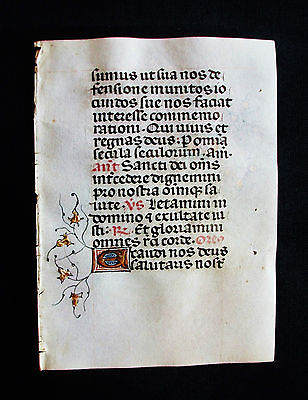 sumus ut sua nos de
fensione munitos io
cundos sue nos faciat
interesse commemo
rationi. Qui vivis et
regnas deus: P omia
secula seculorum. am.
an̄t Sancti dei om̄s
intcedere dignemini
pro nostra omniuq; sa
lute. Vs Letamini in
domino & exultate iu
sti: R. Et gloriamini
omnes r̄ci corde. Oreo
Exaudi nos deus
salutaris nost